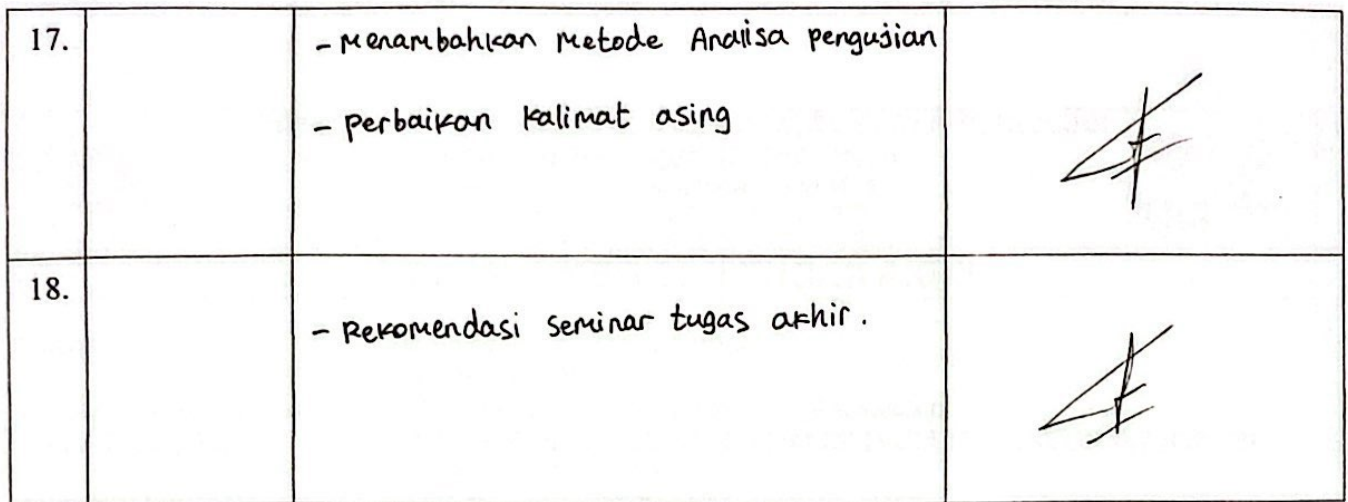 17.
- Menambahkan Metode Analisa pengujian
- perbaikan kalimat asing
18.
- Rekomendasi seminar tugas akhir.